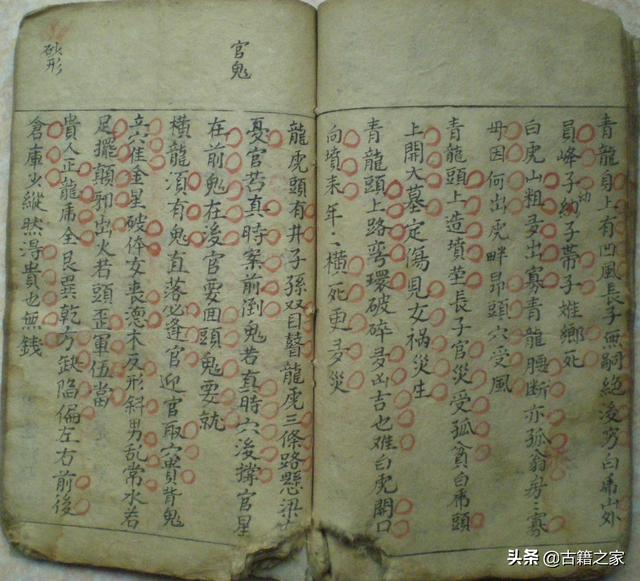 青龍身上有凹風長子無嗣絕後穷白虎山外
員峰子幼子帶子姓鄉死
白虎山粗多出寡青龍腰斷亦孤翁房〻寡
母因何出虎畔昂頭穴受風
青龍頭上造墳塋長子官災受孤貧白虎頭
上開大墓定傷児女祸災生
青龍頭上路彎環破碎多凶吉也难白虎開口
向墳来年〻横死更多災
龍虎頭有井子孫双目瞽龍虎三條路懸梁
官鬼
憂官若真時案前倒鬼若真時穴後撑官星
在前鬼在後官要回頭鬼要就
橫龍須有鬼直落必逢官迎官取穴貴背鬼
砂形
穴佳金星破体女喪德木反形斜男乱常水看
足擺顛和出火若頭歪軍伍當
貴人正龍庸全艮巽乾方缺陷偏左右前後
倉庫少縱然淂貴也無銭
头条@古籍之家